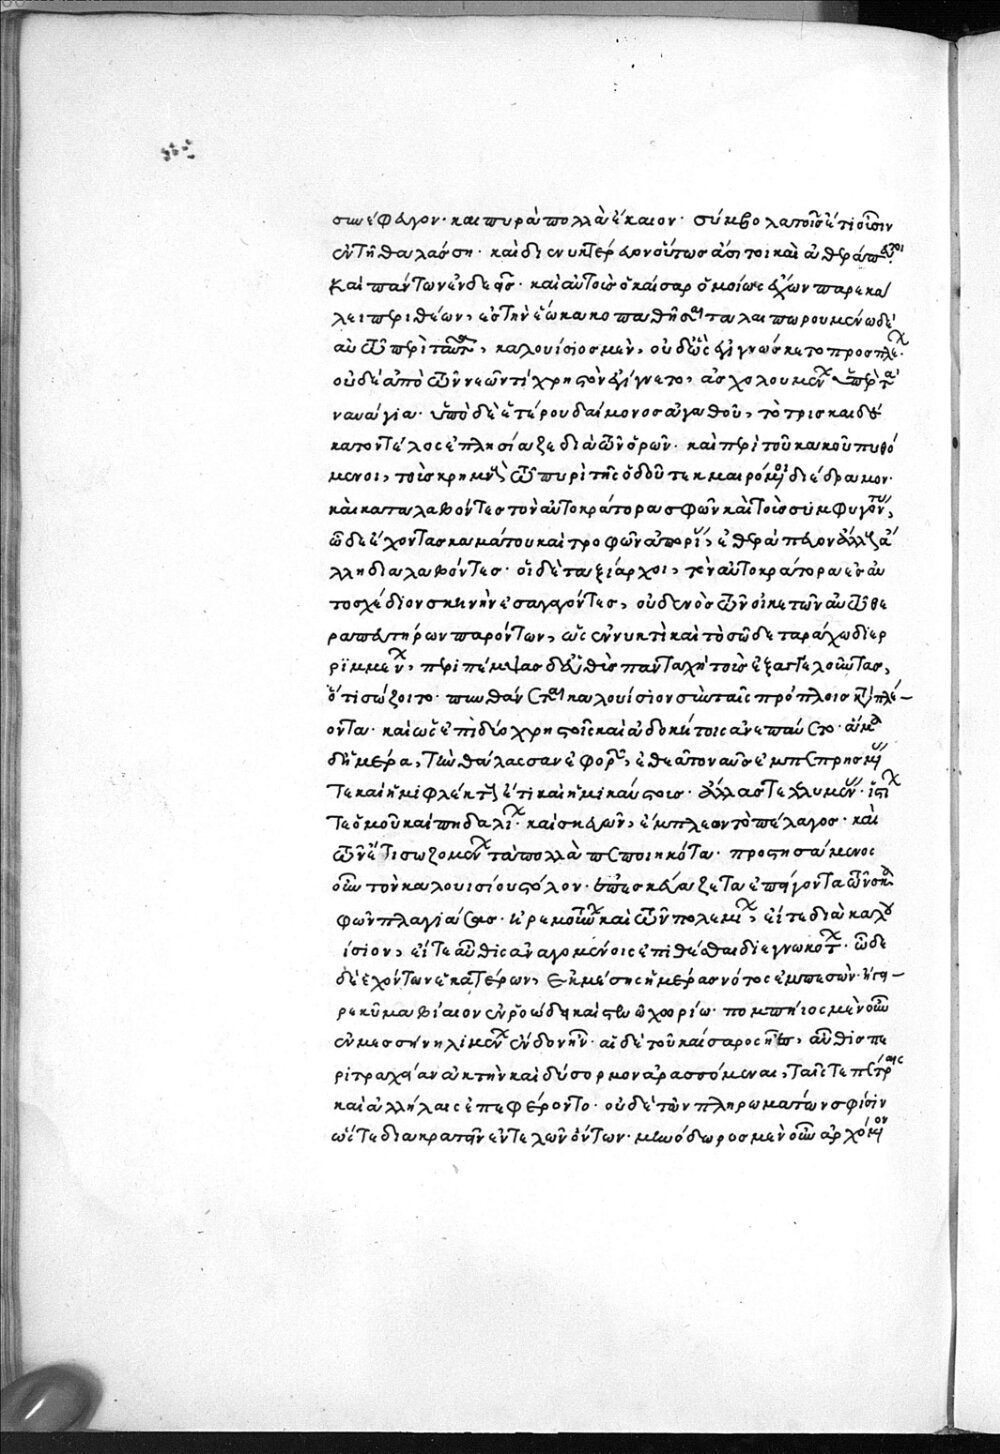 σιν ἔφυγον· καὶ πυρὰ πολλὰ ἔκαιον· σύμβολα τοῖς ἔτι οὖσιν
ἐν τῇ θαλάσσῃ· καὶ διενυκτέρευον οὕτως ἄσιτοι καὶ ἀθεράπευτοι
καὶ πάντων ἐνδεεῖς· καὶ αὐτοῖς ὁ καῖσαρ ὁμοίως ἔχων παρεκά
λει περιθέων, ἐς τὴν ἕω κακοπαθῆσαι ταλαιπωρουμένω δὲ
αὐτῶ περὶ ταῦτα, καλουίσιος μὲν, οὐδ' ὣς ἐγιγνώσκετο προσπλέων·
οὐδὲ ἀπὸ τῶν νεῶν τι χρηστὸν ἐγίγνετο, ἀσχολουμένων περὶ τὰ
ναυάγια· ὑπὸ δὲ ἑτέρου δαίμονος ἀγαθοῦ, τὸ τρισκαιδέ
κατον τέλος ἐπλησίαζε διὰ τῶν ὀρῶν· καὶ περὶ τοῦ κακοῦ πυθό
μενοι, τοὺς κρημνοὺς τῶ πυρὶ τῆς ὁδοῦ τεκμαιρόμενοι διέδραμον·
καὶ καταλαβόντες τὸν αὐτοκράτορα σφῶν καὶ τοὺς συμφυγόντας,
ὧδε ἔχοντας καμάτου καὶ τροφῶν ἀπορίας, ἐθεράπευον ἄλλους ἄ
λλη διαλαβόντες· οἱ δὲ ταξίαρχοι, τὸν αὐτοκράτορα ἐς αὐ
τοσχέδιον σκηνὴν ἐσαγαγόντες, οὐδενὸς τῶν οἰκετῶν αὐτῶ θε
ραπευτήρων παρόντων, ὡς ἐν νυκτὶ καὶ τοσῶδε ταράχω διερ
ριμμένων, περιπέμψας δ' εὐθὺς πανταχῆ τοὺς ἐξαγγελοῦντας,
ὅτι σώζοιτο· πυνθάνεται καλουίσιον σὺν ταῖς πρόπλοις καταπλέ
οντα· καὶ ὡς ἐπὶ δύο χρηστοῖς καὶ ἀδοκήτοις ἀνεπαύετο· ἅμα
δ' ἡμέρα, τὴν θάλασσαν ἐφορῶν, ἐθεᾶτο ναῦς ἐμπεπρησμένας
τε καὶ ἡμιφλέκτους ἔτι καὶ ἡμικαύστους· ἄλλας τε λελυμένας· ἱστίων
τε ὁμοῦ καὶ πηδαλίων· καὶ σκευῶν, ἔμπλεον τὸ πέλαγος· καὶ
τῶν ἔτι σωζομένων τὰ πολλὰ πεπονηκότα· προστησάμενος
οὖν τὸν καλουισίου στόλον· ἐπεσκεύαζε τὰ ἐπείγοντα τῶν σκα
φῶν πλαγιάσας· ἠρεμούντων καὶ τῶν πολεμίων, εἴτε διὰ καλου
ίσιον, εἴτε αὖθις ἀναγομένοις ἐπιθέσθαι διεγνωκότων· ὧδε
δὲ ἐχόντων ἑκατέρων, ἐκ μέσης ἡμέρας νότος ἐμπεσὼν ἤγει
ρε κῦμα βίαιον ἐν ῥοώδει καὶ στενῶ χωρίω· πομπήιος μὲν οὖν
ἐν μεσσήνη λιμένων ἔνδον ἦν· αἱ δὲ τοῦ καίσαρος νῆες, αὖθις πε
ρὶ τραχεῖαν ἀκτὴν καὶ δύσορμον ἀρασσόμεναι, ταῖς τε πέτραις
καὶ ἀλλήλαις ἐπεφέροντο· οὐδὲ τῶν πληρωμάτων σφίσιν
ὥστε διακρατεῖν ἐντελῶν ὄντων· μηνόδωρος μὲν οὖν ἀρχόμενον